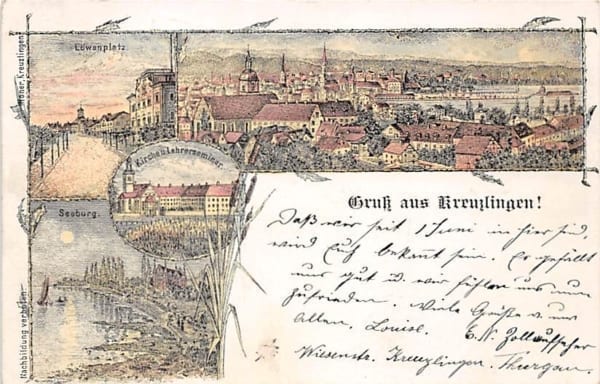 Löwenplatz.
Kirche u. Lehrerseminar.
Seeburg.
Nachbildung verboten.
Kreuzlingen
Gruß aus Kreuzlingen!
Daß wir seit 1 Juni in hier sind,
wird Euch bekannt sein. Es gefällt
uns gut u. wir fühlen uns nun
zufrieden. Viele Grüße v. uns
Allen. Louise. Zollaufseher
Wiesenstr. Kreuzlingen, Thurgau.